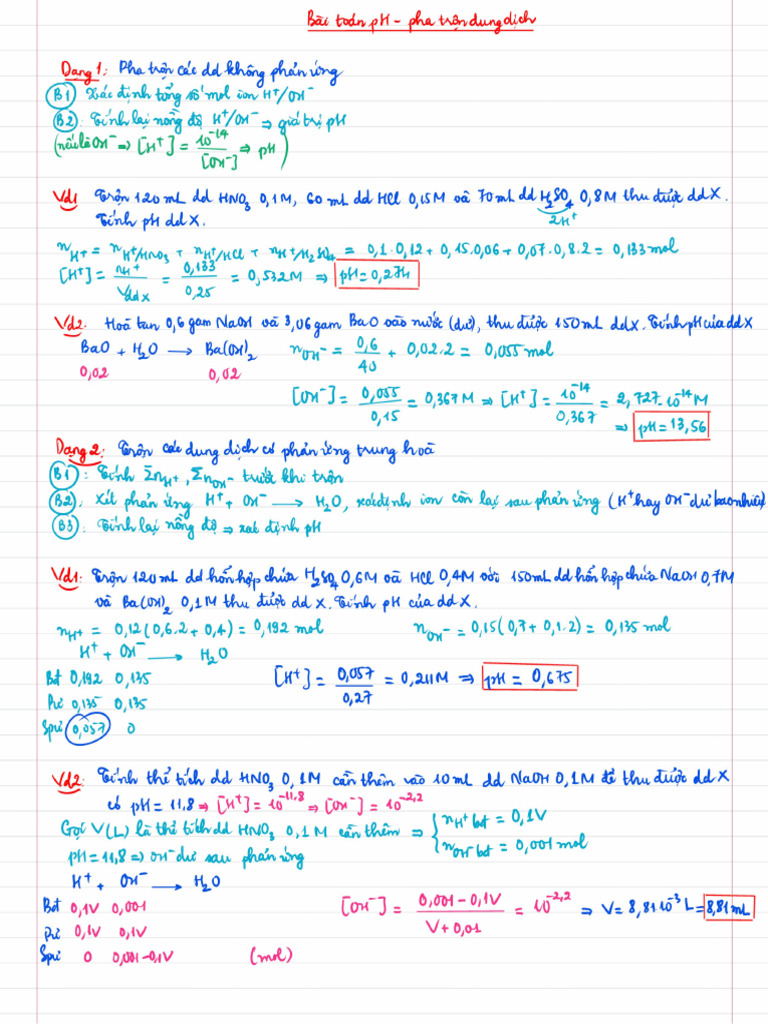 Bài toán pH – pha trộn dung dịch
Dạng 1: Pha trộn các dd không phản ứng
B1 Xác định tổng số mol ion H⁺/OH⁻
B2: Tính lại nồng độ H⁺/OH⁻ ⇒ giá trị pH
(nếu là OH⁻ ⇒ [H⁺] = 10⁻¹⁴/[OH⁻] ⇒ pH)
Vd1 Trộn 120 mL dd HNO₃ 0,1M, 60 mL dd HCl 0,15M và 70 mL dd H₂SO₄ 0,8M thu được dd X.
2H⁺
Tính pH dd X.
n_H⁺ = n_H⁺/HNO₃ + n_H⁺/HCl + n_H⁺/H₂SO₄ = 0,1.0,12 + 0,15.0,06 + 0,07.0,8.2 = 0,133 mol
[H⁺] = n_H⁺/V_ddX = 0,133/0,25 = 0,532M ⇒ pH = 0,274
Vd2: Hoà tan 0,6 gam NaOH và 3,06 gam BaO vào nước (dư), thu được 150 mL dd X. Tính pH của dd X
BaO + H₂O → Ba(OH)₂ n_OH⁻ = 0,6/40 + 0,02.2 = 0,055 mol
0,02 0,02
[OH⁻] = 0,055/0,15 = 0,367M ⇒ [H⁺] = 10⁻¹⁴/0,367 = 2,727.10⁻¹⁴M
⇒ pH = 13,56
Dạng 2: Trộn các dung dịch có phản ứng trung hoà
B1: Tính Σn_H⁺, Σn_OH⁻ trước khi trộn
B2: Xét phản ứng H⁺ + OH⁻ → H₂O, xác định ion còn lại sau phản ứng (H⁺ hay OH⁻ dư bao nhiêu)
B3: Tính lại nồng độ ⇒ xác định pH
Vd1: Trộn 120 mL dd hỗn hợp chứa H₂SO₄ 0,6M và HCl 0,4M với 150 mL dd hỗn hợp chứa NaOH 0,7M
và Ba(OH)₂ 0,1M thu được dd X. Tính pH của dd X.
n_H⁺ = 0,12(0,6.2 + 0,4) = 0,192 mol n_OH⁻ = 0,15(0,7 + 0,1.2) = 0,135 mol
H⁺ + OH⁻ → H₂O
Bđ 0,192 0,135 [H⁺] = 0,057/0,27 = 0,211M ⇒ pH = 0,675
Pứ 0,135 0,135
Spứ 0,057 0
Vd2: Tính thể tích dd HNO₃ 0,1M cần thêm vào 10 mL dd NaOH 0,1M để thu được dd X
có pH = 11,8 ⇒ [H⁺] = 10⁻¹¹·⁸ ⇒ [OH⁻] = 10⁻²·²
Gọi V(L) là thể tích dd HNO₃ 0,1M cần thêm ⇒ { n_H⁺ bđ = 0,1V
n_OH⁻ bđ = 0,001 mol
pH = 11,8 ⇒ OH⁻ dư sau phản ứng
H⁺ + OH⁻ → H₂O
Bđ 0,1V 0,001 [OH⁻] = (0,001 – 0,1V)/(V + 0,01) = 10⁻²·² ⇒ V = 8,81.10⁻³ L = 8,81 mL
Pứ 0,1V 0,1V
Spứ 0 0,001–0,1V (mol)